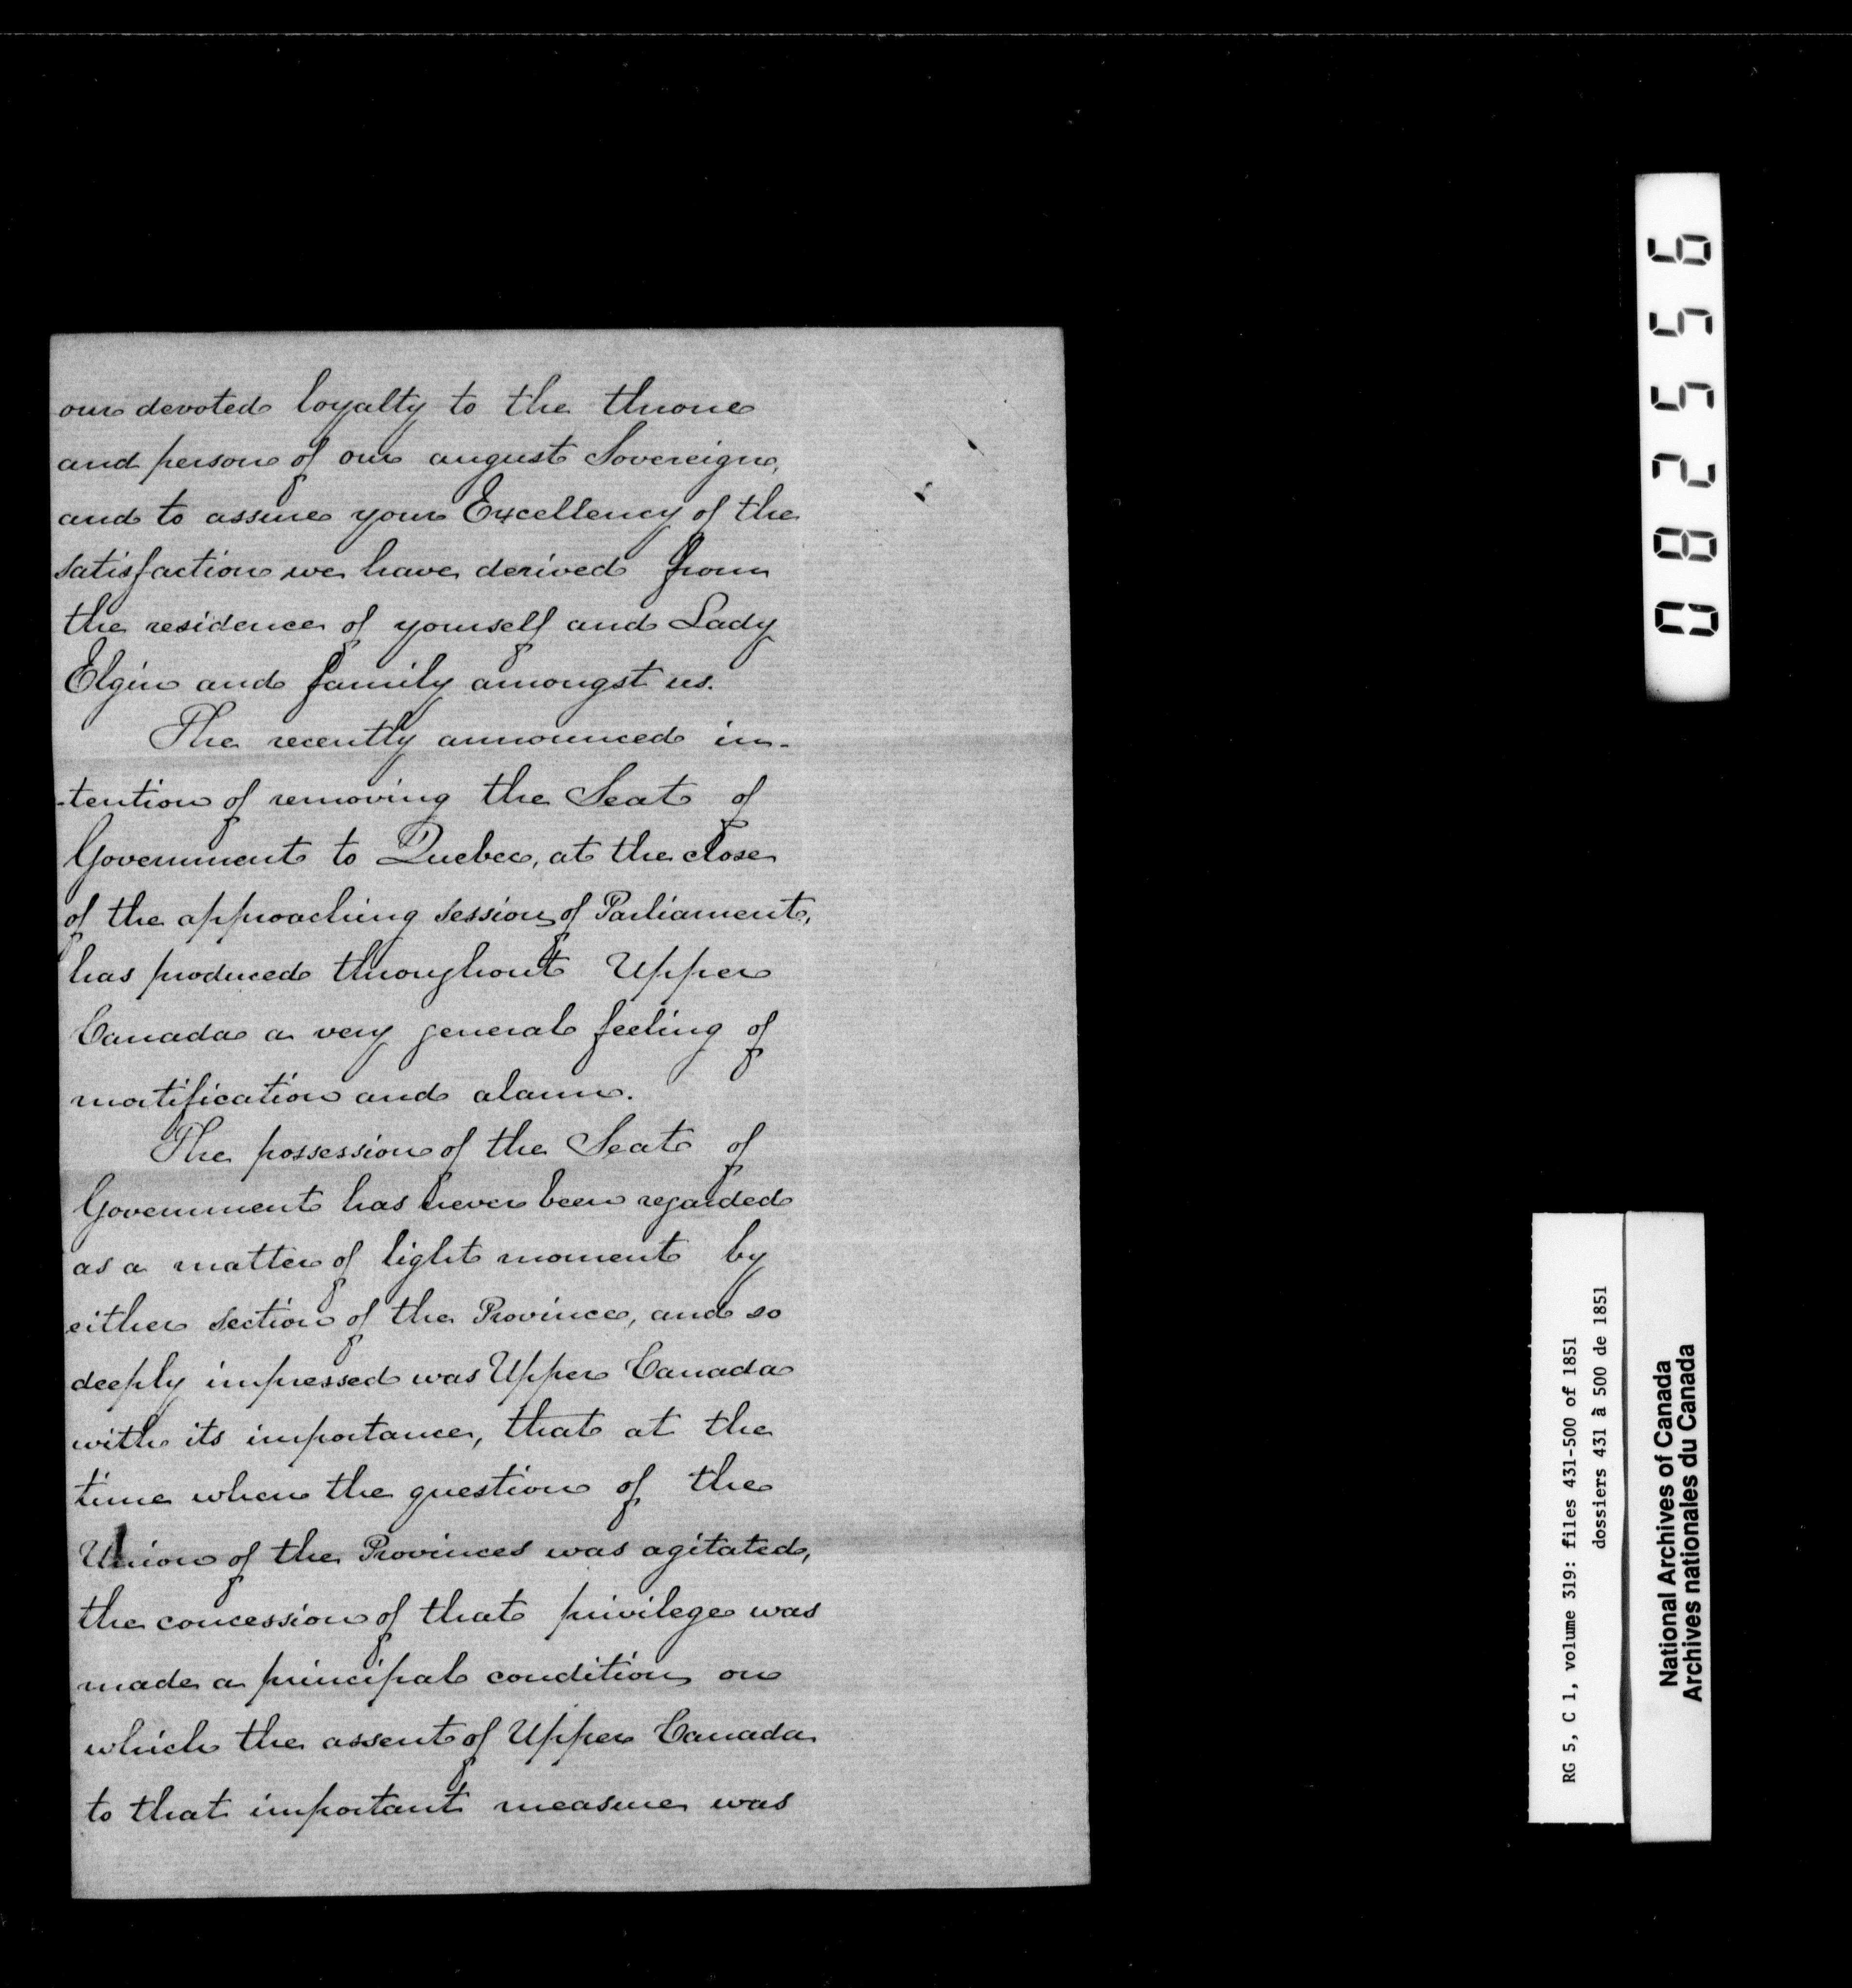 our devoted loyalty to the throne
and person of our august Sovereign,
and to assure your Excellency of the
satisfaction we have derived from
the residence of yourself and Lady
Elgin and family amongst us.
The recently announced in-
-tention of removing the Seat of
Government to Quebec, at the close
of the approaching session of Parliament,
has produced throughout Upper
Canada a very general feeling of
mortification and alarm.
The possession of the Seat of
Government has never been regarded
as a matter of light moment by
either section of the Province, and so
deeply impressed was Upper Canada
with its importance, that at the
time when the question of the
Union of the Provinces was agitated,
the concession of that privilege was
made a principal condition on
which the assent of Upper Canada
to that important measure was
082556
RG 5, C 1, volume 319: files 431-500 of 1851
dossiers 431 à 500 de 1851
National Archives of Canada
Archives nationales du Canada